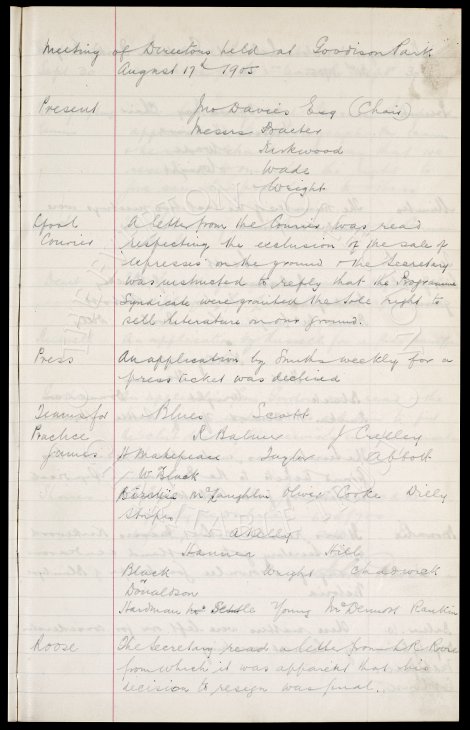 Meeting of Directors held at Goodison Park
August 17th 1905
Present Jno Davies Esq (Chair)
Messrs Baxter
Kirkwood
Wade
Wright
Goal A letter from the Courier was read
Courier respecting the exclusion of the sale of
"expresses" on the ground & the Secretary
was instructed to reply that the Programme
Syndicate were granted the sole right to
sell literature on our ground.
Press An application by Smiths weekly for a
press ticket was declined
Teams for Blues Scott
Practice R Balmer J Crelley
Games H Makepeace Taylor Abbott
W Black
McLaughlin Oliver Cooke Dilly
Stripes
Hannea Hill
Black Wright Chadwick
Donaldson
Hardman Settle Young McDermott Rankin
Roose The Secretary read a letter from L R Roose
from which it was apparent that his
decision to resign was final.